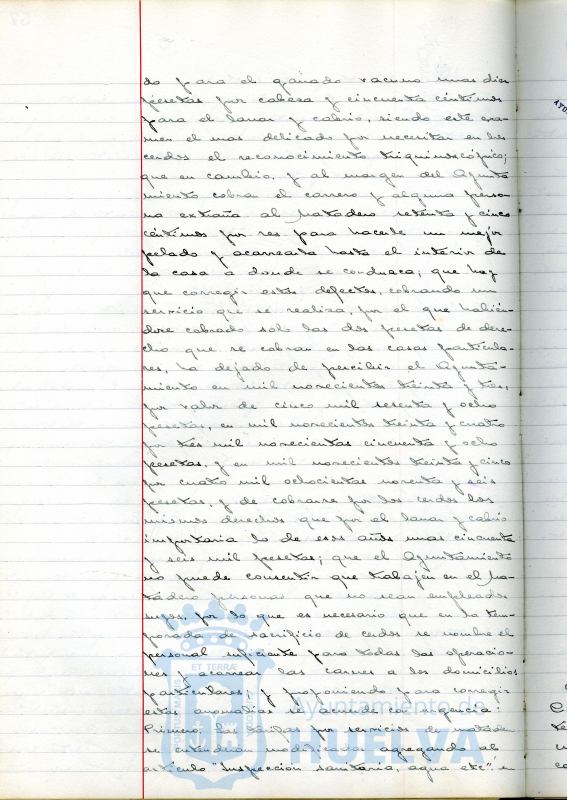 do para el ganado vacuno unas diez
pesetas por cabeza y cincuenta céntimos
para el lanar y cabrio, siendo este exa-
men el mas delicado por necesitar en los
cerdos el reconocimiento triquinoscópico;
que en cambio, y al margen del Ayunta
miento cobran el carrero y alguna perso-
na extraña al Matadero setenta y cinco
céntimos por res para hacerle un mejor
pelado y acarrearla hasta el interior de
la casa a donde se conduzca; que hay
que corregir estos defectos, cobrando un
servicio que se realiza, por el que habién-
dose cobrado solo las dos pesetas de dere-
cho que se cobran en las casas particula-
res, ha dejado de percibir el Ayunta-
miento en mil novecientos treinta y tres,
por valor de cinco mil sesenta y ocho
pesetas, en mil novecientos treinta y cuatro
por tres mil novecientas cincuenta y ocho
pesetas, y en mil novecientos treinta y cinco
por cuatro mil ochocientas noventa y seis
pesetas, y de cobrarse por los cerdos los
mismos derechos que por el lanar y cabrio
importaria lo de esos años unas cincuenta
y seis mil pesetas; que el Ayuntamiento
no puede consentir que trabajen en el Ma-
tadero personas que no sean empleados
suyos, por lo que es necesario que en la tem-
porada de sacrificio de cerdos se nombre el
personal suficiente para todas las operacio-
nes y acarrear las carnes a los domicilios
particulares; y proponiendo para corregir
estas anomalias se acuerde con urgencia:
Primero, las tarifas por servicios de matadero
se entenderán modificadas agregando al
artículo "Inspección sanitaria, agua etc"
ET TERRÆ
Ayuntamiento de
HUELVA